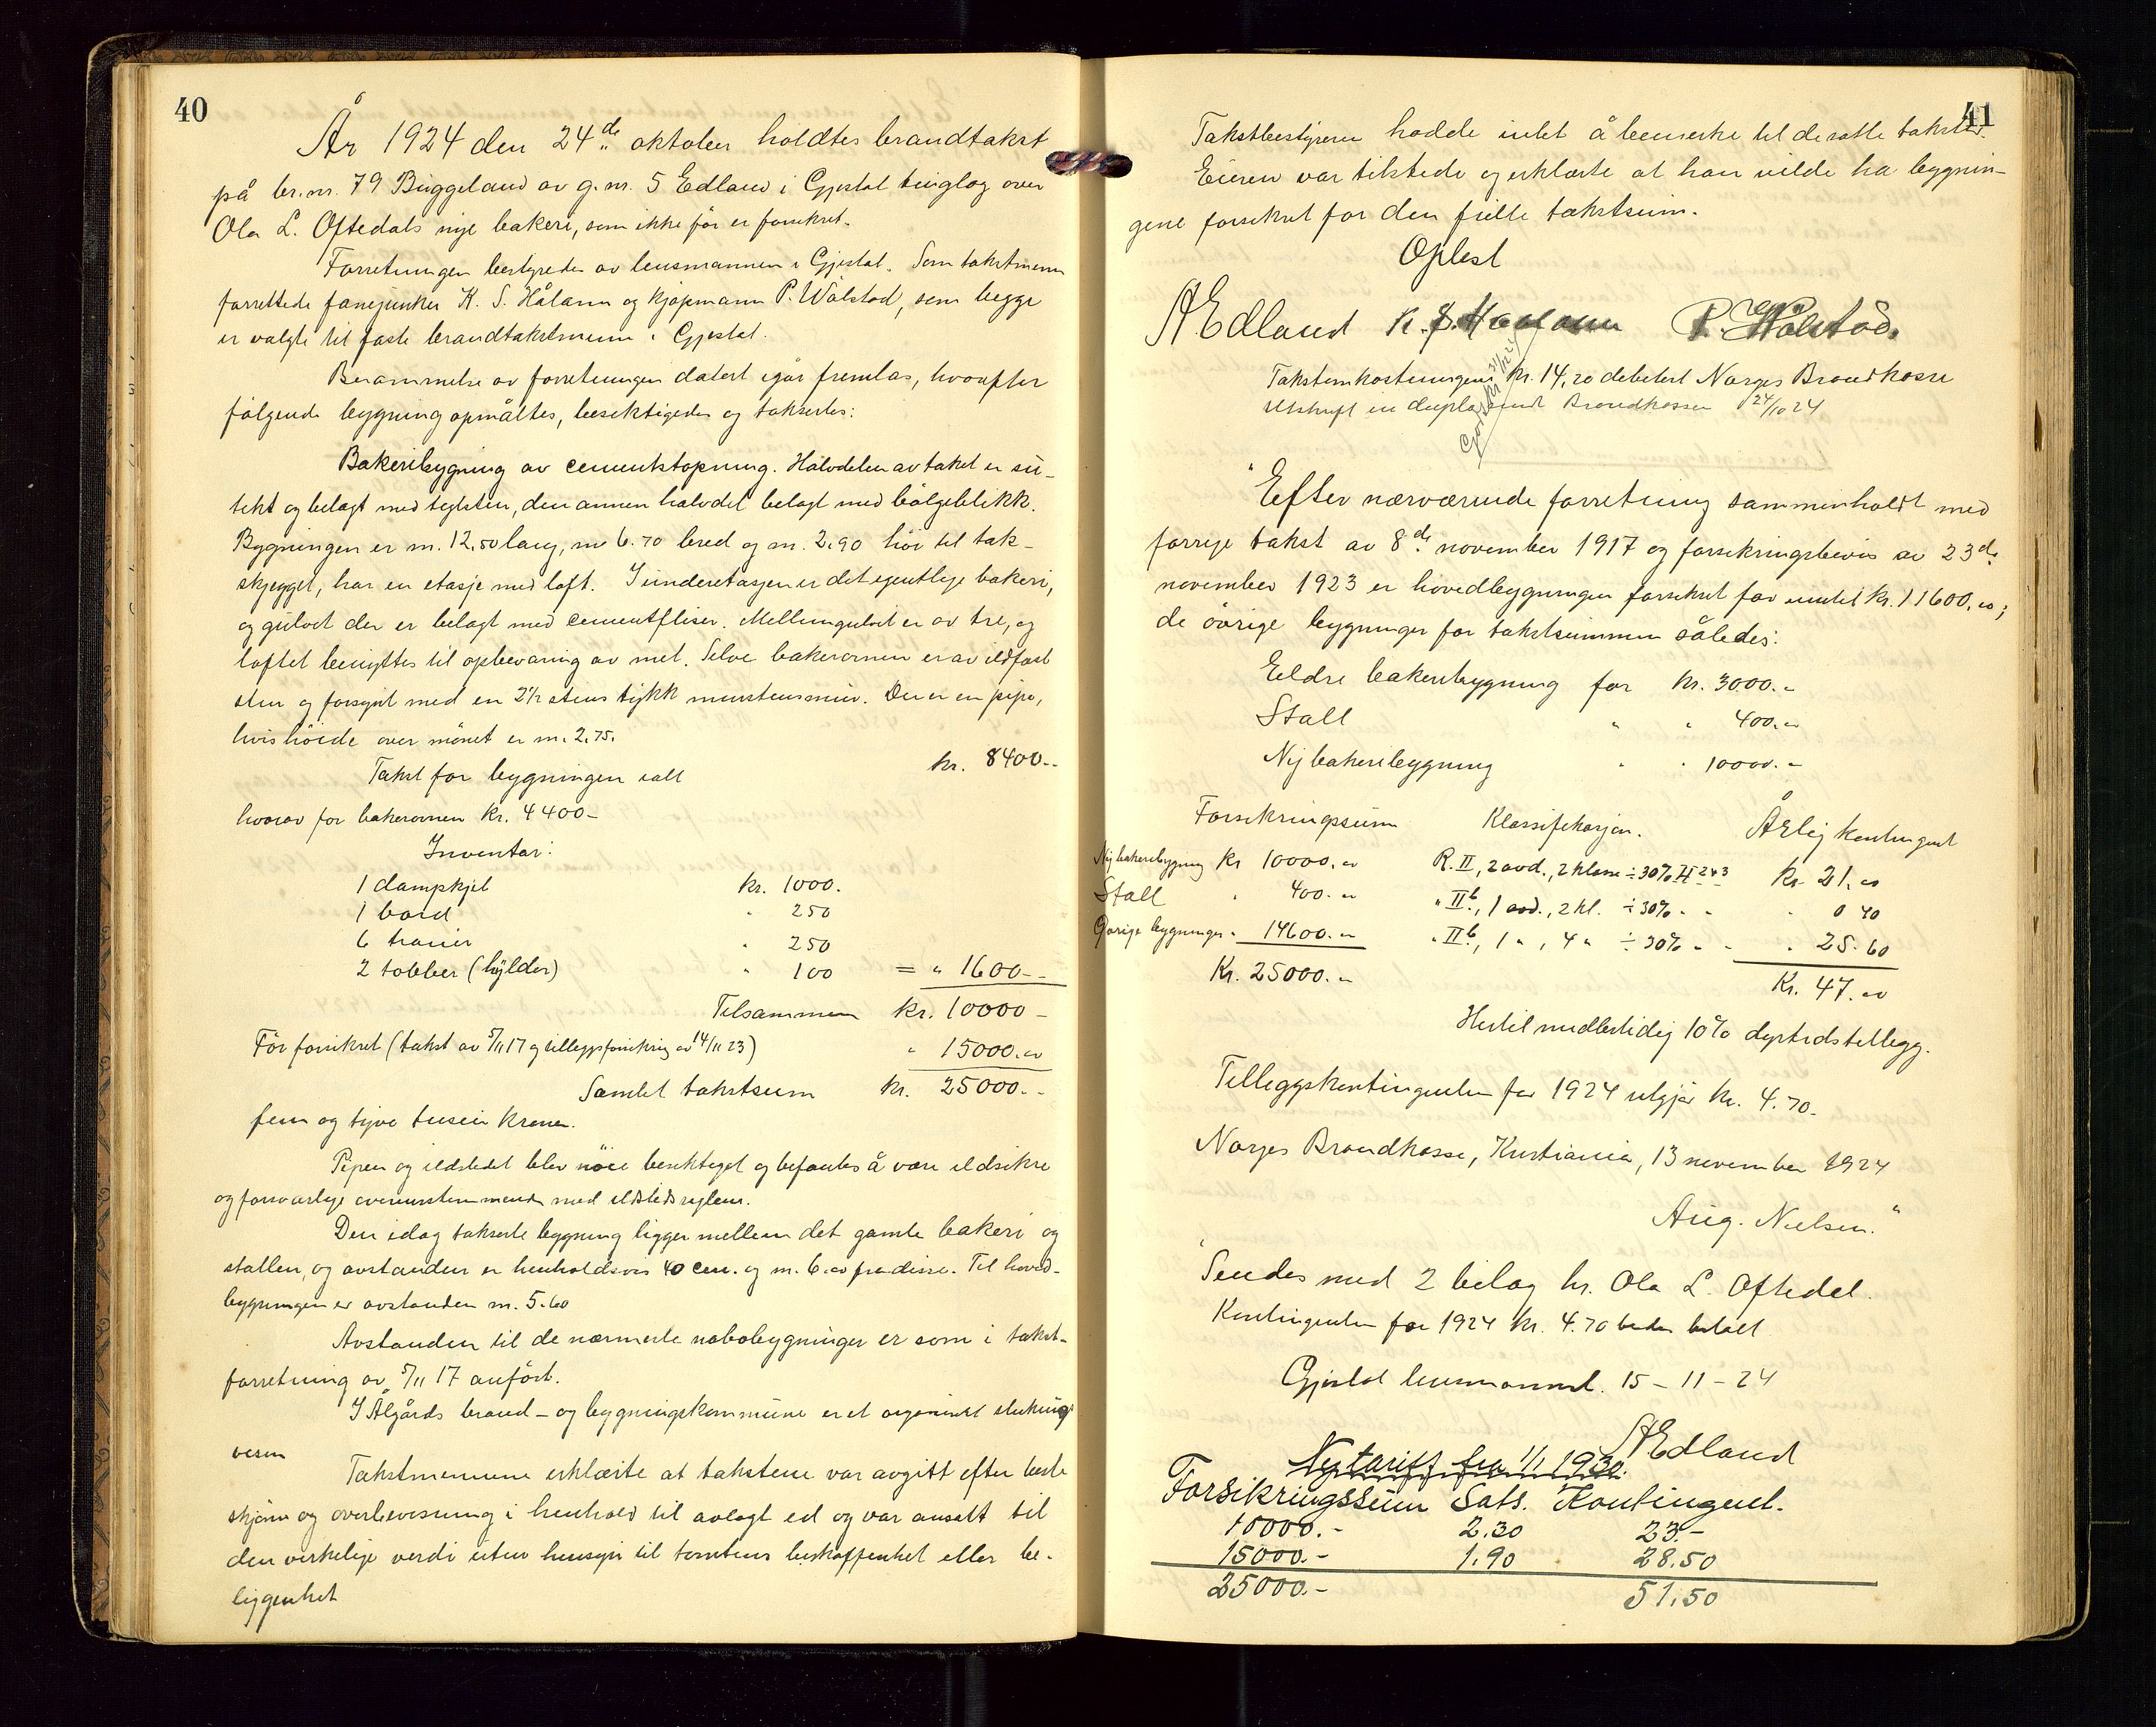 40
År 1924 den 24de oktober holdtes brandtakst
på br.nr. 79 Byggeland av g.nr. 5 Edland i Gjestal tinglag over
Ola L. Oftedals nye bakeri, som ikke før er forsikret.
Forretningen bestyredes av lensmannen i Gjestal. Som takstmenn
forrettede fanejunker K. S. Håland og kjøpmann P. Wålstad, som begge
er valgte til faste brandtakstmenn i Gjestal.
Berammelse av forretningen datert igår fremlas, hvorefter
følgende bygning opmåltes, besiktigedes og takserdes:
Bakeribygning av cementstøpning. Halvdelen av taket er su-
tekt og belagt med teglsten, den annen halvdel belagt med bølgeblikk.
Bygningen er m. 12,50 lang, m 6.70 bred og m. 2.90 høi til tak-
skjegget, har en etasje med loft. I underetasjen er det egentlige bakeri,
og gulvet der er belagt med cementfliser. Mellemgulvet er av tre, og
loftet benyttes til opbevaring av mel. Selve bakerovnen er av ildfast
sten og forsynt med en 2½ stens tykk murstensmur. Der er en pipe,
hvis høide over mønet er m. 2.75.
Takst for bygningen ialt kr. 8400.-
hvorav for bakerovnen kr. 4400-
Inventar:
1 dampkjel kr. 1000.
1 bord " 250
6 trauer " 250
2 tobber (hylder) " 100 = " 1600--
Tilsammen kr. 10000-
Før forsikret (takst av 5/11 17 og tilleggsforsikring av 14/11 23) " 15000.00
Samlet takstsum kr. 25000.-
fem og tyve tusen kroner.
Pipen og ildstedet blev nøie besiktiget og befantes å være ildsikre
og forsvarlige overensstemmende med ildstedsreglene.
Den idag takserte bygning ligger mellem det gamle bakeri og
stallen, og avstanden er henholdsvis 40 cm. og m. 6.00 fra disse. Til hoved-
bygningen er avstanden m. 5.60
Avstanden til de nærmeste nabobygninger er som i takst-
forretning av 5/11 17 anført.
I Ålgårds brand- og bygningskommune er et organisert slukings
vesen
Takstmennene erklærte at takstene var avgitt efter beste
skjønn og overbevisning i henhold til avlagt ed og var ansatt til
den virkelige verdi uten hensyn til tomtens beskaffenhet eller be-
liggenhet
41
Takstbestyreren hadde intet å bemerke til de satte takster.
Eieren var tilstede og erklærte at han vilde ha bygnin-
gene forsikret for den fulle takstsum.
Oplest
AEdland K. S. Haaland P. Wålstad.
Takstomkostningene kr. 14,20 debetert Norges Brandkasse
Utskrift in duplo sendt Brandkassen 24/10 24
"Efter nærværende forretning sammenholdt med
forrige takst av 8de november 1917 og forsikringsbevis av 23de
november 1923 er hovedbygningen forsikret for inntil kr. 11600.00;
de øvrige bygninger for takstsummen således:
Eldre bakeribygning for kr. 3000.-
Stall " " 400.00
Ny bakeribygning " " 10000.-
Forsikringssum Klassifikasjon. Årlig kontingent
Ny bakeribygning kr 10000.00 R. II, 2 avd., 2 klasse ÷ 30% H 2+3 kr. 21.00
Stall " 400.00 " IIb, 1 avd., 2 kl. ÷ 30% - - " 0 40
Øvrige bygninger " 14600.00 " IIb, 1 " , 4 " ÷ 30% - - " 25.60
Kr. 25000.00 Kr. 47.00
Hertil midlertidig 10% dyrtidstillegg.
Tilleggskontingenten for 1924 utgjør kr. 4.70.
Norges Brandkasse, Kristiania, 13 november 1924
Aug. Nielsen."
Sendes med 2 bilag hr. Ola L. Oftedal.
Kontingenten for 1924 kr. 4.70 bedes betalt
Gjestal lensmannsk. 15-11-24
AEdland
Ny tariff fra 1/1 1930.
Forsikringssum Sats. Kontingent.
10000.- 2.30 23.-
15000.- 1.90 28.50
25000.- 51.50